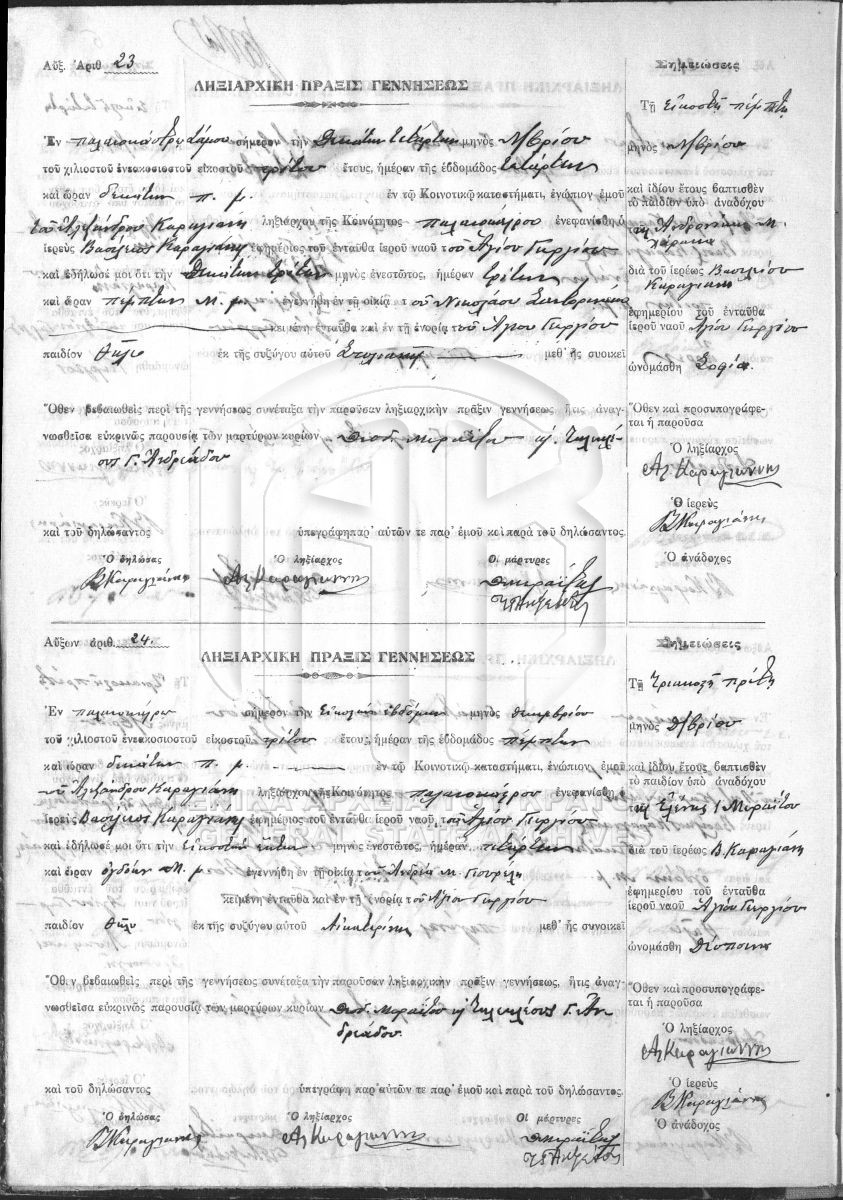 Αὔξ. Ἀριθ 23
ΛΗΞΙΑΡΧΙΚΗ ΠΡΑΞΙΣ ΓΕΝΝΗΣΕΩΣ
Ἐν σήμερον τὴν Δεκάτην τετάρτην μηνὸς Νβρίου
τοῦ χιλιοστοῦ ἐνεακοσιοστοῦ εἰκοστοῦ τρίτου ἔτους, ἡμέραν τῆς ἑβδομάδος τετάρτην
καὶ ὥραν δεκάτην π. μ. ἐν τῷ Κοινοτικῷ καταστήματι, ἐνώπιον ἐμοῦ
τοῦ Ἀλεξάνδρου Καραγιάνη ληξιάρχου τῆς Κοινότητος ἐνεφανίσθη ὁ
ἱερεὺς Βασίλειος Καραγιάνης ἐφημέριος τοῦ ἐνταῦθα ἱεροῦ ναοῦ τοῦ Ἁγίου Γεωργίου
καὶ ἐδήλωσέ μοι ὅτι τὴν Δεκάτην τρίτην μηνὸς ἐνεστῶτος, ἡμέραν τρίτην
καὶ ὥραν πέμπτην Μ. μ. ἐγεννήθη ἐν τῇ οἰκίᾳ τοῦ Νικολάου
κειμένῃ ἐνταῦθα καὶ ἐν τῇ ἐνορίᾳ τοῦ Ἁγίου Γεωργίου
παιδίον θῆλυ ἐκ τῆς συζύγου αὐτοῦ Στυλιανῆς μεθ' ἧς συνοικεῖ
Ὅθεν βεβαιωθεὶς περὶ τῆς γεννήσεως συνέταξα τὴν παροῦσαν ληξιαρχικὴν πρᾶξιν γεννήσεως, ἥτις ἀναγ-
νωσθεῖσα εὐκρινῶς παρουσίᾳ τῶν μαρτύρων κυρίων Θεοδ. Μωραΐτου
Γ. Ἀνδρεάδου
καὶ τοῦ δηλώσαντος ὑπεγράφη παρ' αὐτῶν τε παρ' ἐμοῦ καὶ παρὰ τοῦ δηλώσαντος.
Ὁ δηλώσας Ὁ ληξίαρχος Οἱ μάρτυρες
Β Καραγιάνης Αλ Καραγιάννης
Σημειώσεις
Τῇ Εἰκοστῇ πέμπτῃ
μηνὸς Νβρίου
καὶ ἰδίου ἔτους βαπτισθὲν
τὸ παιδίον ὑπὸ ἀναδόχου
Μ.
διὰ τοῦ ἱερέως Βασιλείου
Καραγιάνη
ἐφημερίου τοῦ ἐνταῦθα
ἱεροῦ ναοῦ Ἁγίου Γεωργίου
ὠνομάσθη Σοφία.
Ὅθεν καὶ προσυπογράφε-
ται ἡ παροῦσα
Ὁ ληξίαρχος
Αλ Καραγιάννης
Ὁ ἱερεὺς
Β Καραγιάνης
Ὁ ἀνάδοχος
Αὔξων ἀριθ. 24.
ΛΗΞΙΑΡΧΙΚΗ ΠΡΑΞΙΣ ΓΕΝΝΗΣΕΩΣ
Ἐν σήμερον τὴν Εἰκοστὴν ἑβδόμην μηνὸς Δεκεμβρίου
τοῦ χιλιοστοῦ ἐνεακοσιοστοῦ εἰκοστοῦ τρίτου ἔτους, ἡμέραν τῆς ἑβδομάδος πέμπτην
καὶ ὥραν δεκάτην π. μ. ἐν τῷ Κοινοτικῷ καταστήματι, ἐνώπιον ἐμοῦ
τοῦ Ἀλεξάνδρου Καραγιάνη ληξιάρχου τῆς Κοινότητος ἐνεφανίσθη ὁ
ἱερεὺς Βασίλειος Καραγιάνης ἐφημέριος τοῦ ἐνταῦθα ἱεροῦ ναοῦ, τοῦ Ἁγίου Γεωργίου
καὶ ἐδήλωσέ μοι ὅτι τὴν Εἰκοστὴν ἕκτην μηνὸς ἐνεστῶτος, ἡμέραν τετάρτην
καὶ ὥραν ὀγδόην Μ. μ ἐγεννήθη ἐν τῇ οἰκίᾳ τοῦ Ἀνδρέα Μ.
κειμένῃ ἐνταῦθα καὶ ἐν τῇ ἐνορίᾳ τοῦ Ἁγίου Γεωργίου
παιδίον θῆλυ ἐκ τῆς συζύγου αὐτοῦ Αἰκατερίνης μεθ' ἧς συνοικεῖ
Ὅθεν βεβαιωθεὶς περὶ τῆς γεννήσεως συνέταξα τὴν παροῦσαν ληξιαρχικὴν πρᾶξιν γεννήσεως, ἥτις ἀναγ-
νωσθεῖσα εὐκρινῶς παρουσίᾳ τῶν μαρτύρων κυρίων Θεοδ. Μωραΐτου Γ. Ἀν
δρεάδου.
καὶ τοῦ δηλώσαντος ὑπεγράφη παρ' αὐτῶν τε παρ' ἐμοῦ καὶ παρὰ τοῦ δηλώσαντος,
Ὁ δηλώσας Ὁ ληξίαρχος Οἱ μάρτυρες
Β Καραγιάνης Αλ Καραγιάννης
Σημειώσεις
Τῇ Τριακοστῇ πρώτῃ
μηνὸς Δβρίου
καὶ ἰδίου ἔτους βαπτισθὲν
τὸ παιδίον ὑπὸ ἀναδόχου
τῆς Ἑλένης Μωραΐτου
διὰ τοῦ ἱερέως Β. Καραγιάνη
ἐφημερίου τοῦ ἐνταῦθα
ἱεροῦ ναοῦ Ἁγίου Γεωργίου
ὠνομάσθη Δέσποινα
Ὅθεν καὶ προσυπογράφε-
ται ἡ παροῦσα
Ὁ ληξίαρχος
Αλ Καραγιάννης
Ὁ ἱερεὺς
Β Καραγιάνης
Ὁ ἀνάδοχος
ΓΕΝΙΚΑ ΑΡΧΕΙΑ ΤΟΥ ΚΡΑΤΟΥΣ
GENERAL STATE ARCHIVES